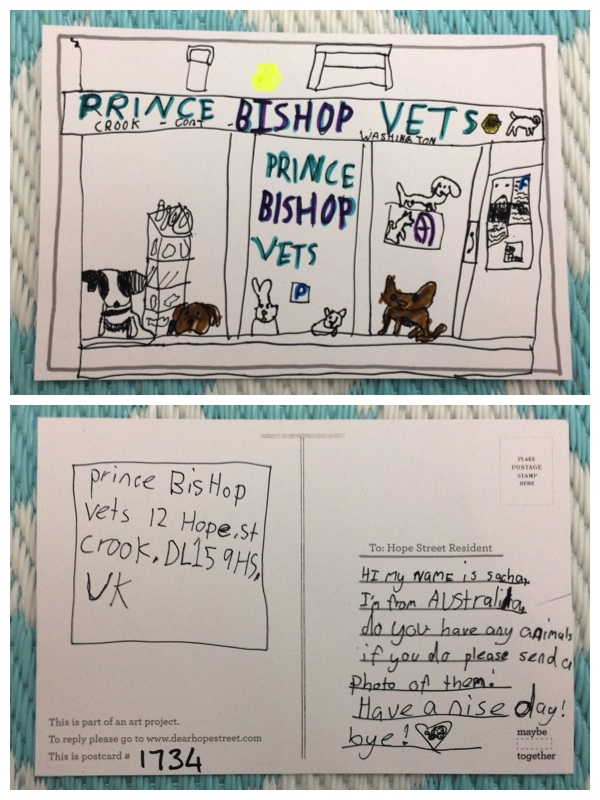 PRINCE BISHOP VETS
CROOK - CONT - WASHINGTON
PRINCE
BISHOP
VETS
P
P
prince BisHop
vets 12 Hope.st
Crook, DL15 9HS,
UK
This is part of an art project.
To reply please go to www.dearhopestreet.com
This is postcard # 1734
PLACE
POSTAGE
STAMP
HERE
To: Hope Street Resident
HI MY NAME is sacha,
I'm from AUStralia,
do you have any animals
if you do please send a
photo of them!
Have a nise day!
bye!
maybe
together